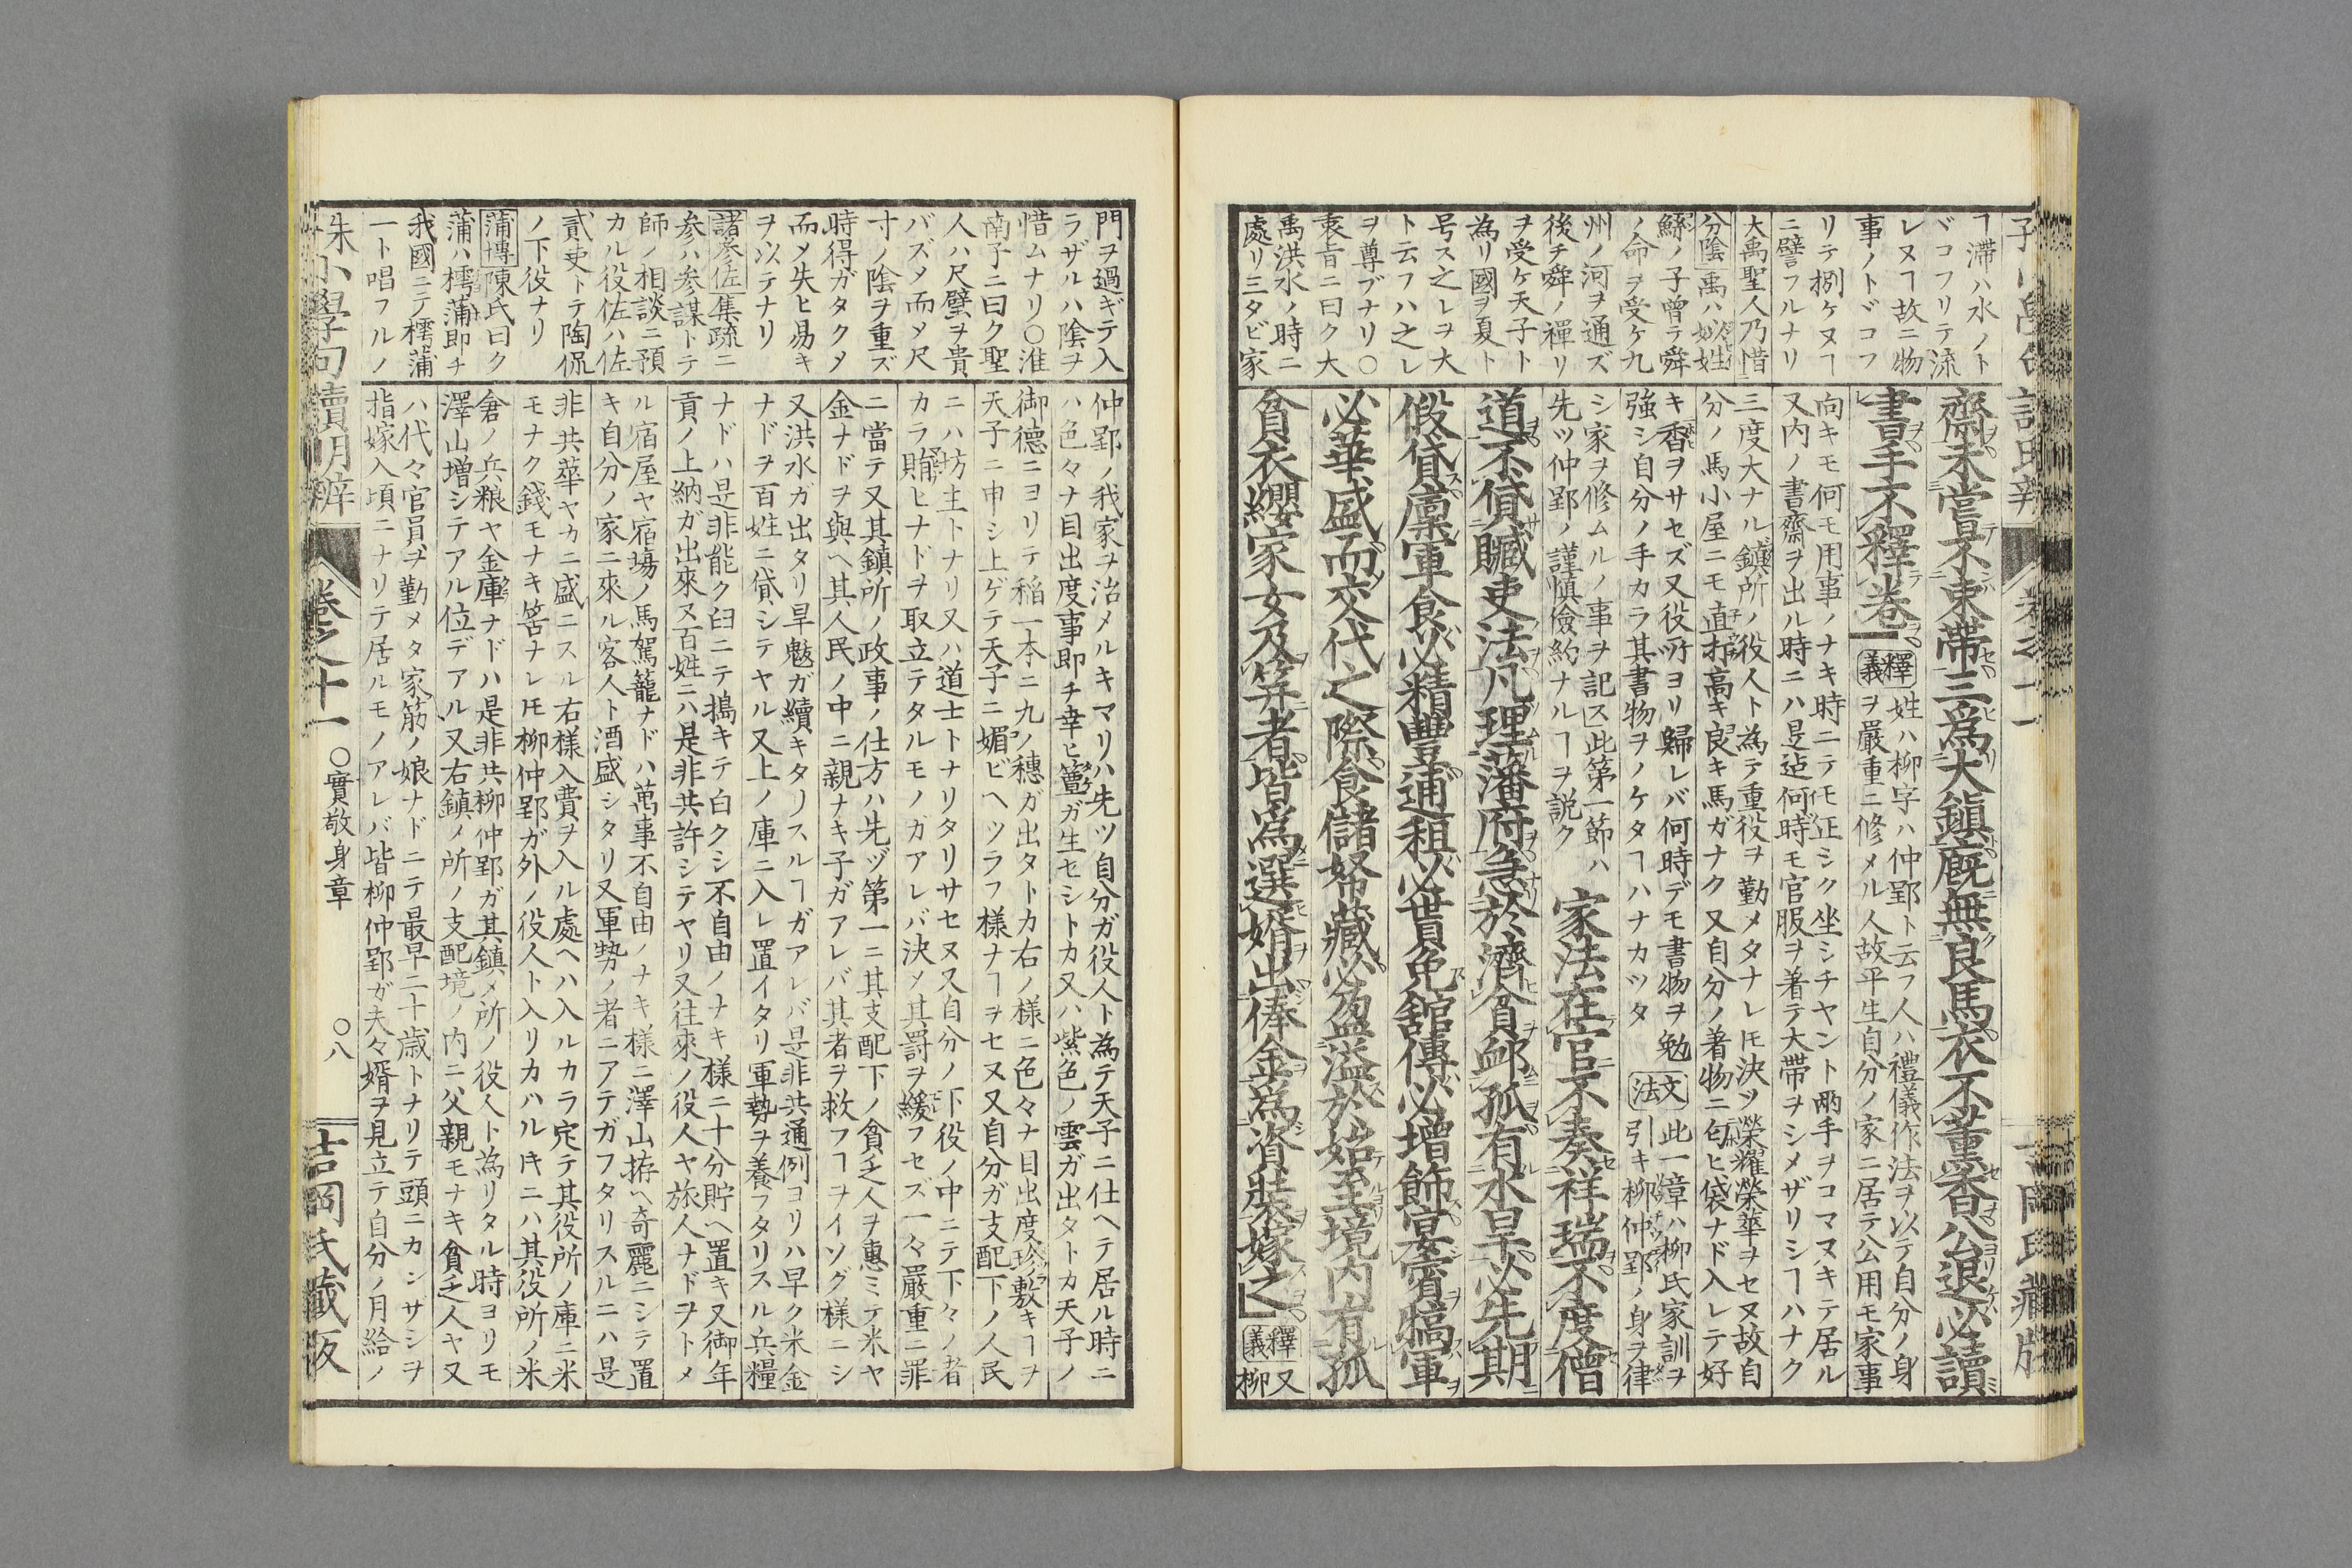 ヿ滯ハ水ノト
ドコフリテ流
レヌヿ故ニ物
事ノトドコフ
リテ捌ケヌヿ
ニ譬フルナリ
大禹聖人乃惜
分陰 禹ハ姒姓
鯀ノ子曽テ舜
ノ命ヲ受ケ九
州ノ河ヲ通ズ
後チ舜ノ禪リ
ヲ受ケ天子ト
為リ國ヲ夏ト
号ス之レヲ大
ト云フハ之レ
ヲ尊ブナリ〇
袁盲ニ曰ク大
禹洪水ノ時ニ
處リ三タビ家
齋未嘗不束帶三為大鎮廐無良馬衣不薫香公退必讀
書手不釋卷
釋義 姓ハ柳字ハ仲郢ト云フ人ハ禮儀作法ヲ以テ自分ノ身
ヲ嚴重ニ修メル人故平生自分ノ家ニ居テ公用モ家事
向キモ何モ用事ノナキ時ニテモ正シク坐シチヤント兩手ヲコマヌキテ居ル
又内ノ書齋ヲ出ル時ニハ是迠何時モ官服ヲ着テ大帶ヲシメザリシヿハナク
三度大ナル鎮所ノ役人ト為テ重役ヲ勤メタナレ𪜈決ツ榮耀榮華ヲセヌ故自
分ノ馬小屋ニモ直打高キ良キ馬ガナク又自分ノ着物ニ匂ヒ袋ナド入レテ好
キ香ヲサセズ又役所ヨリ歸レバ何時デモ書物ヲ勉
強シ自分ノ手カラ其書物ヲノケタヿハナカツタ
文法 此一章ハ柳氏家訓ヲ
引キ柳仲郢ノ身ヲ律
シ家ヲ修ムルノ事ヲ記ス此第一節ハ
先ツ仲郢ノ謹慎儉約ナルヿヲ説ク
家法在官不奏祥瑞不度僧
道不貸贓吏法凡理藩府急於濟貧卹孤有水旱必先期
假貸廩軍食必精豐逋租必貰免舘傳必增飾宴賓犒軍
必華盛而交代之際食儲帑藏必盈溢於始至境内有孤
貧衣纓家女及笄者皆為選婿出俸金為資裝嫁之
釋義 又
柳
門ヲ過ギテ入
ラザルハ陰ヲ
惜ムナリ〇淮
南子ニ曰ク聖
人ハ尺璧ヲ貴
バズメ而メ尺
寸ノ陰ヲ重ズ
時得ガタクメ
而メ失ヒ易キ
ヲ以テナリ
諸參佐 集疏ニ
參ハ參謀トテ
師ノ相談ニ預
カル役佐ハ佐
貳吏トテ陶侃
ノ下役ナリ
蒲博 陳氏曰ク
蒲ハ樗蒲即チ
我國ニテ樗蒲
一ト唱フルノ
仲郢ノ我家ヲ治メルキマリハ先ツ自分ガ役人ト為テ天子ニ仕ヘテ居ル時ニ
ハ色々ナ目出度事即チ幸ヒ蓂ガ生セシトカ又ハ紫色ノ雲ガ出タトカ天子ノ
御德ニヨリテ稲一本ニ九ノ穗ガ出タトカ右ノ樣ニ色々ナ目出度珍敷キヿヲ
天子ニ申シ上ゲテ天子ニ媚ビヘツラフ樣ナヿヲセヌ又自分ガ支配下ノ人民
ニハ坊主トナリ又ハ道士トナリタリサセヌ又自分ノ下役ノ中ニテ下々ノ者
カラ賄ヒナドヲ取立テタルモノガアレバ決メ其罸ヲ緩フセズ一々嚴重ニ罪
ニ當テ又其鎮所ノ政事ノ仕方ハ先ヅ第一ニ其支配下ノ貧乏人ヲ惠ミテ米ヤ
金ナドヲ與ヘ其人民ノ中ニ親ナキ子ガアレバ其者ヲ救フヿヲイソグ樣ニシ
又洪水ガ出タリ旱魃ガ續キタリスルヿガアレバ是非共通例ヨリハ早ク米金
ナドヲ百姓ニ貸シテヤル又上ノ庫ニ入レ置イタリ軍勢ヲ養フタリスル兵糧
ナドハ是非能ク臼ニテ搗キテ白クシ不自由ノナキ樣ニ十分貯ヘ置キ又御年
貢ノ上納ガ出來ヌ百姓ニハ是非共許シテヤリ又往來ノ役人ヤ旅人ナドヲトメ
ル宿屋ヤ宿塲ノ馬駕籠ナドハ萬事不自由ノナキ樣ニ澤山拵ヘ奇麗ニシテ置
キ自分ノ家ニ來ル客人ト酒盛シタリ又軍勢ノ者ニアテガフタリスルニハ是
非共華ヤカニ盛ニスル右樣入費ヲ入ル處ヘハ入ルカラ定テ其役所ノ庫ニ米
モナク錢モナキ筈ナレ𪜈柳仲郢ガ外ノ役人ト入リカハルキニハ其役所ノ米
倉ノ兵粮ヤ金庫ナドハ是非共柳仲郢ガ其鎮メ所ノ役人ト為リタル時ヨリモ
澤山増シテアル位デアル又右鎮メ所ノ支配境ノ内ニ父親モナキ貧乏人ヤ又
ハ代々官員ヲ勤メタ家筋ノ娘ナドニテ最早二十歳トナリテ頭ニカンサシヲ
指嫁入頃ニナリテ居ルモノアレバ皆柳仲郢ガ夫々婿ヲ見立テ自分ノ月給ノ
朱小學句讀明辨 卷之十一 〇實敬身章 〇八 吉岡氏藏版